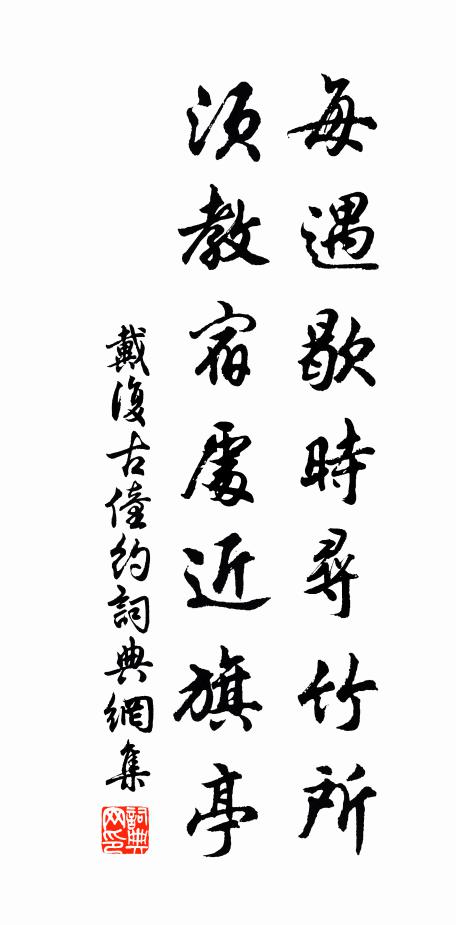 每遇歇時尋竹所
須教宿處近旗亭
戴復古僮約詞典網集
詞典網印